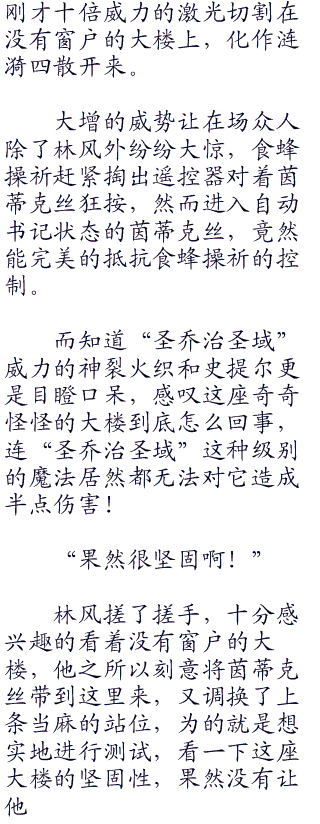 刚才十倍威力的激光切割在
没有窗户的大楼上，化作涟
漪四散开来。
大增的威势让在场众人
除了林风外纷纷大惊，食蜂
操祈赶紧掏出遥控器对着茵
蒂克丝狂按，然而进入自动
书记状态的茵蒂克丝，竟然
能完美的抵抗食蜂操祈的控
制。
而知道“圣乔治圣域”
威力的神裂火织和史提尔更
是目瞪口呆，感叹这座奇奇
怪怪的大楼到底怎么回事，
连“圣乔治圣域”这种级别
的魔法居然都无法对它造成
半点伤害！
“果然很坚固啊！”
林风搓了搓手，十分感
兴趣的看着没有窗户的大
楼，他之所以刻意将茵蒂克
丝带到这里来，又调换了上
条当麻的站位，为的就是想
实地进行测试，看一下这座
大楼的坚固性，果然没有让
他